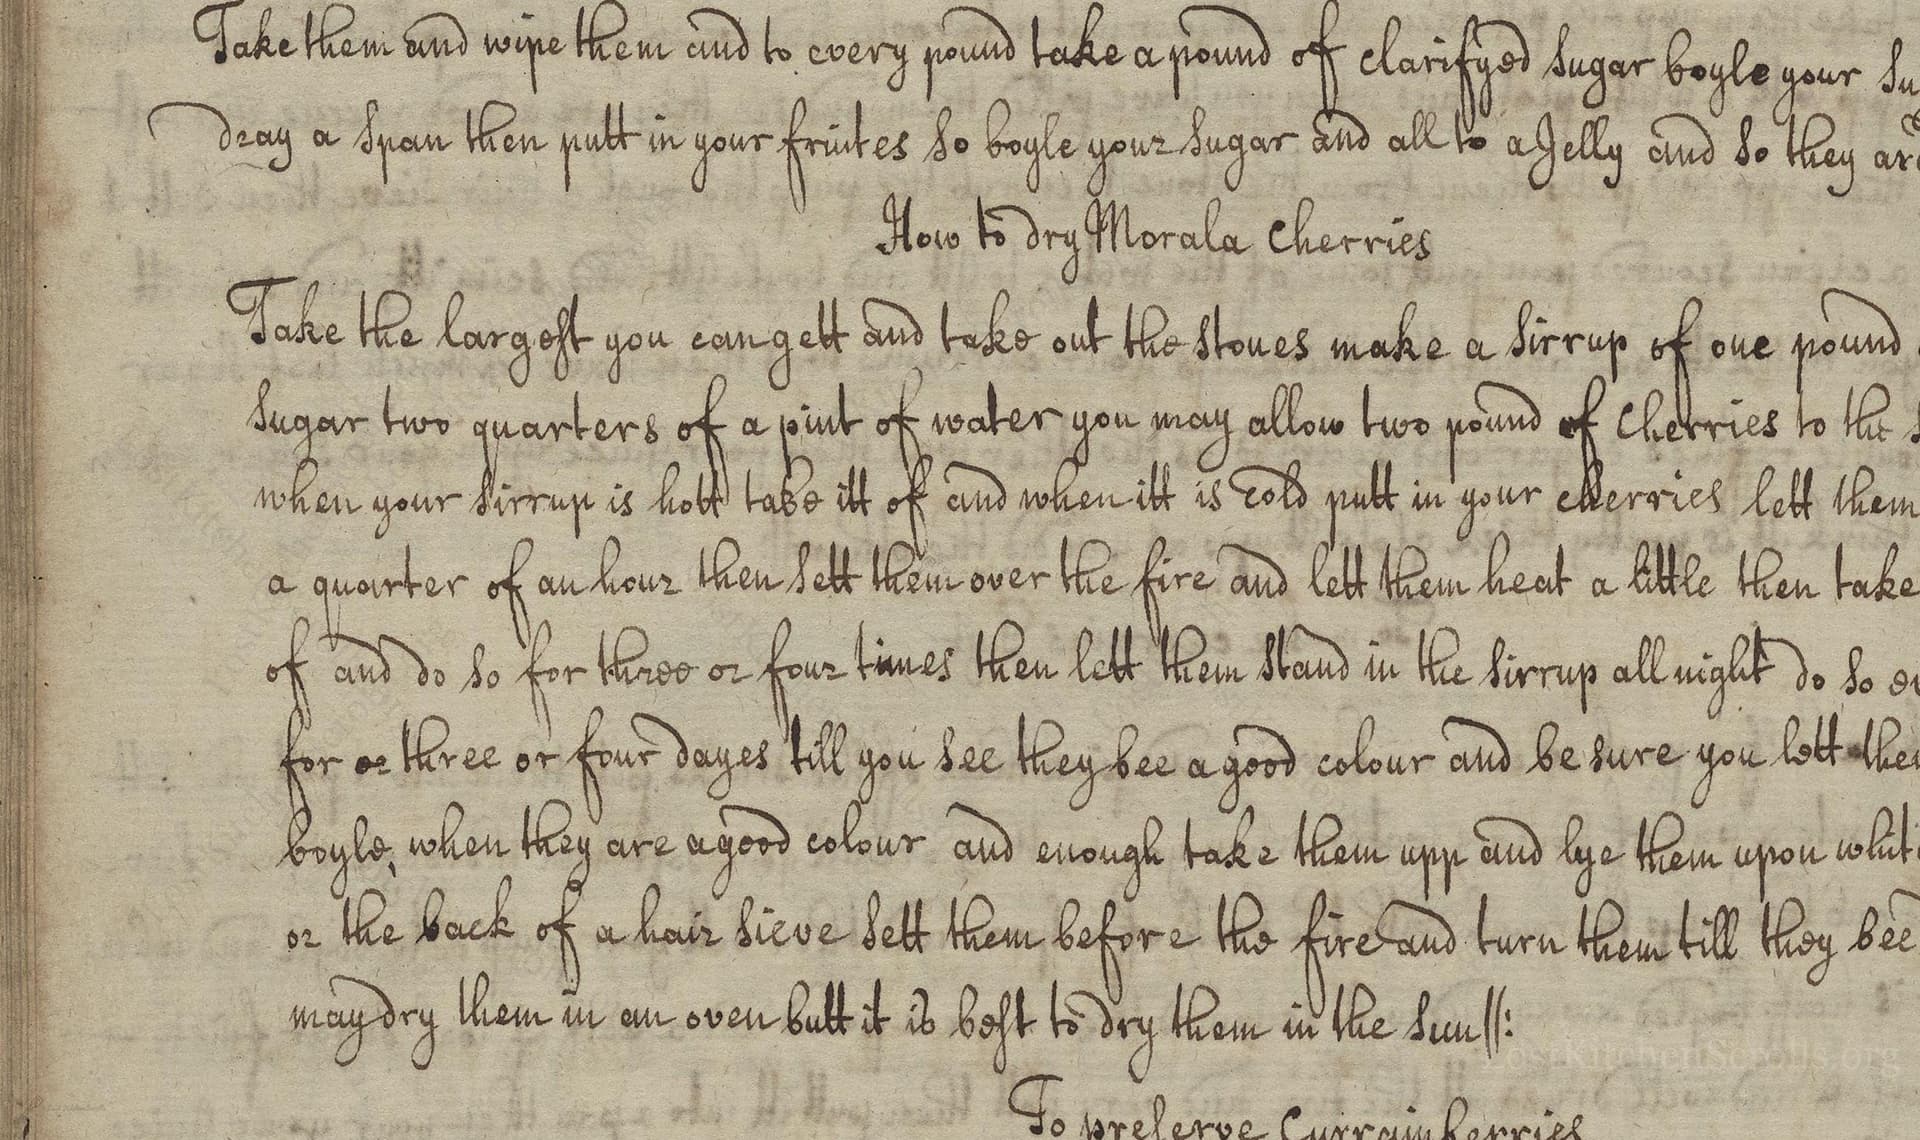 Take them and wipe them and to every pound take a pound of clarifyed sugar boyle your su
dray a span then putt in your fruites so boyle your sugar and all to a Jelly and so they are
How to dry Morala Cherries
Take the largest you can gett and take out the stones make a sirrup of one pound
sugar two quarters of a pint of water you may allow two pound of Cherries to the s
when your sirrup is hott take itt of and when itt is cold putt in your cherries lett them
a quarter of an hour then sett them over the fire and lett them heat a little then take
of and do so for three or four times then lett them stand in the sirrup all night do so ev
for or three or four dayes till you see they bee a good colour and be sure you lett them
boyle, when they are a good colour and enough take them upp and lye them upon white
or the back of a hair sieve sett them before the fire and turn them till they bee
may dry them in an oven butt it is best to dry them in the sun//:
LostKitchenScrolls.org
To preserve Currainberries